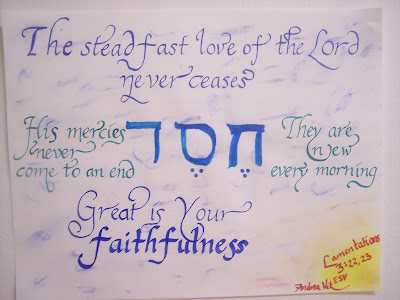 The steadfast love of the Lord
never ceases
His mercies
never
come to an end
חֶסֶד
They are
new
every morning
Great is Your
faithfulness
Lamentations
3:22,23
ESV
Andrea